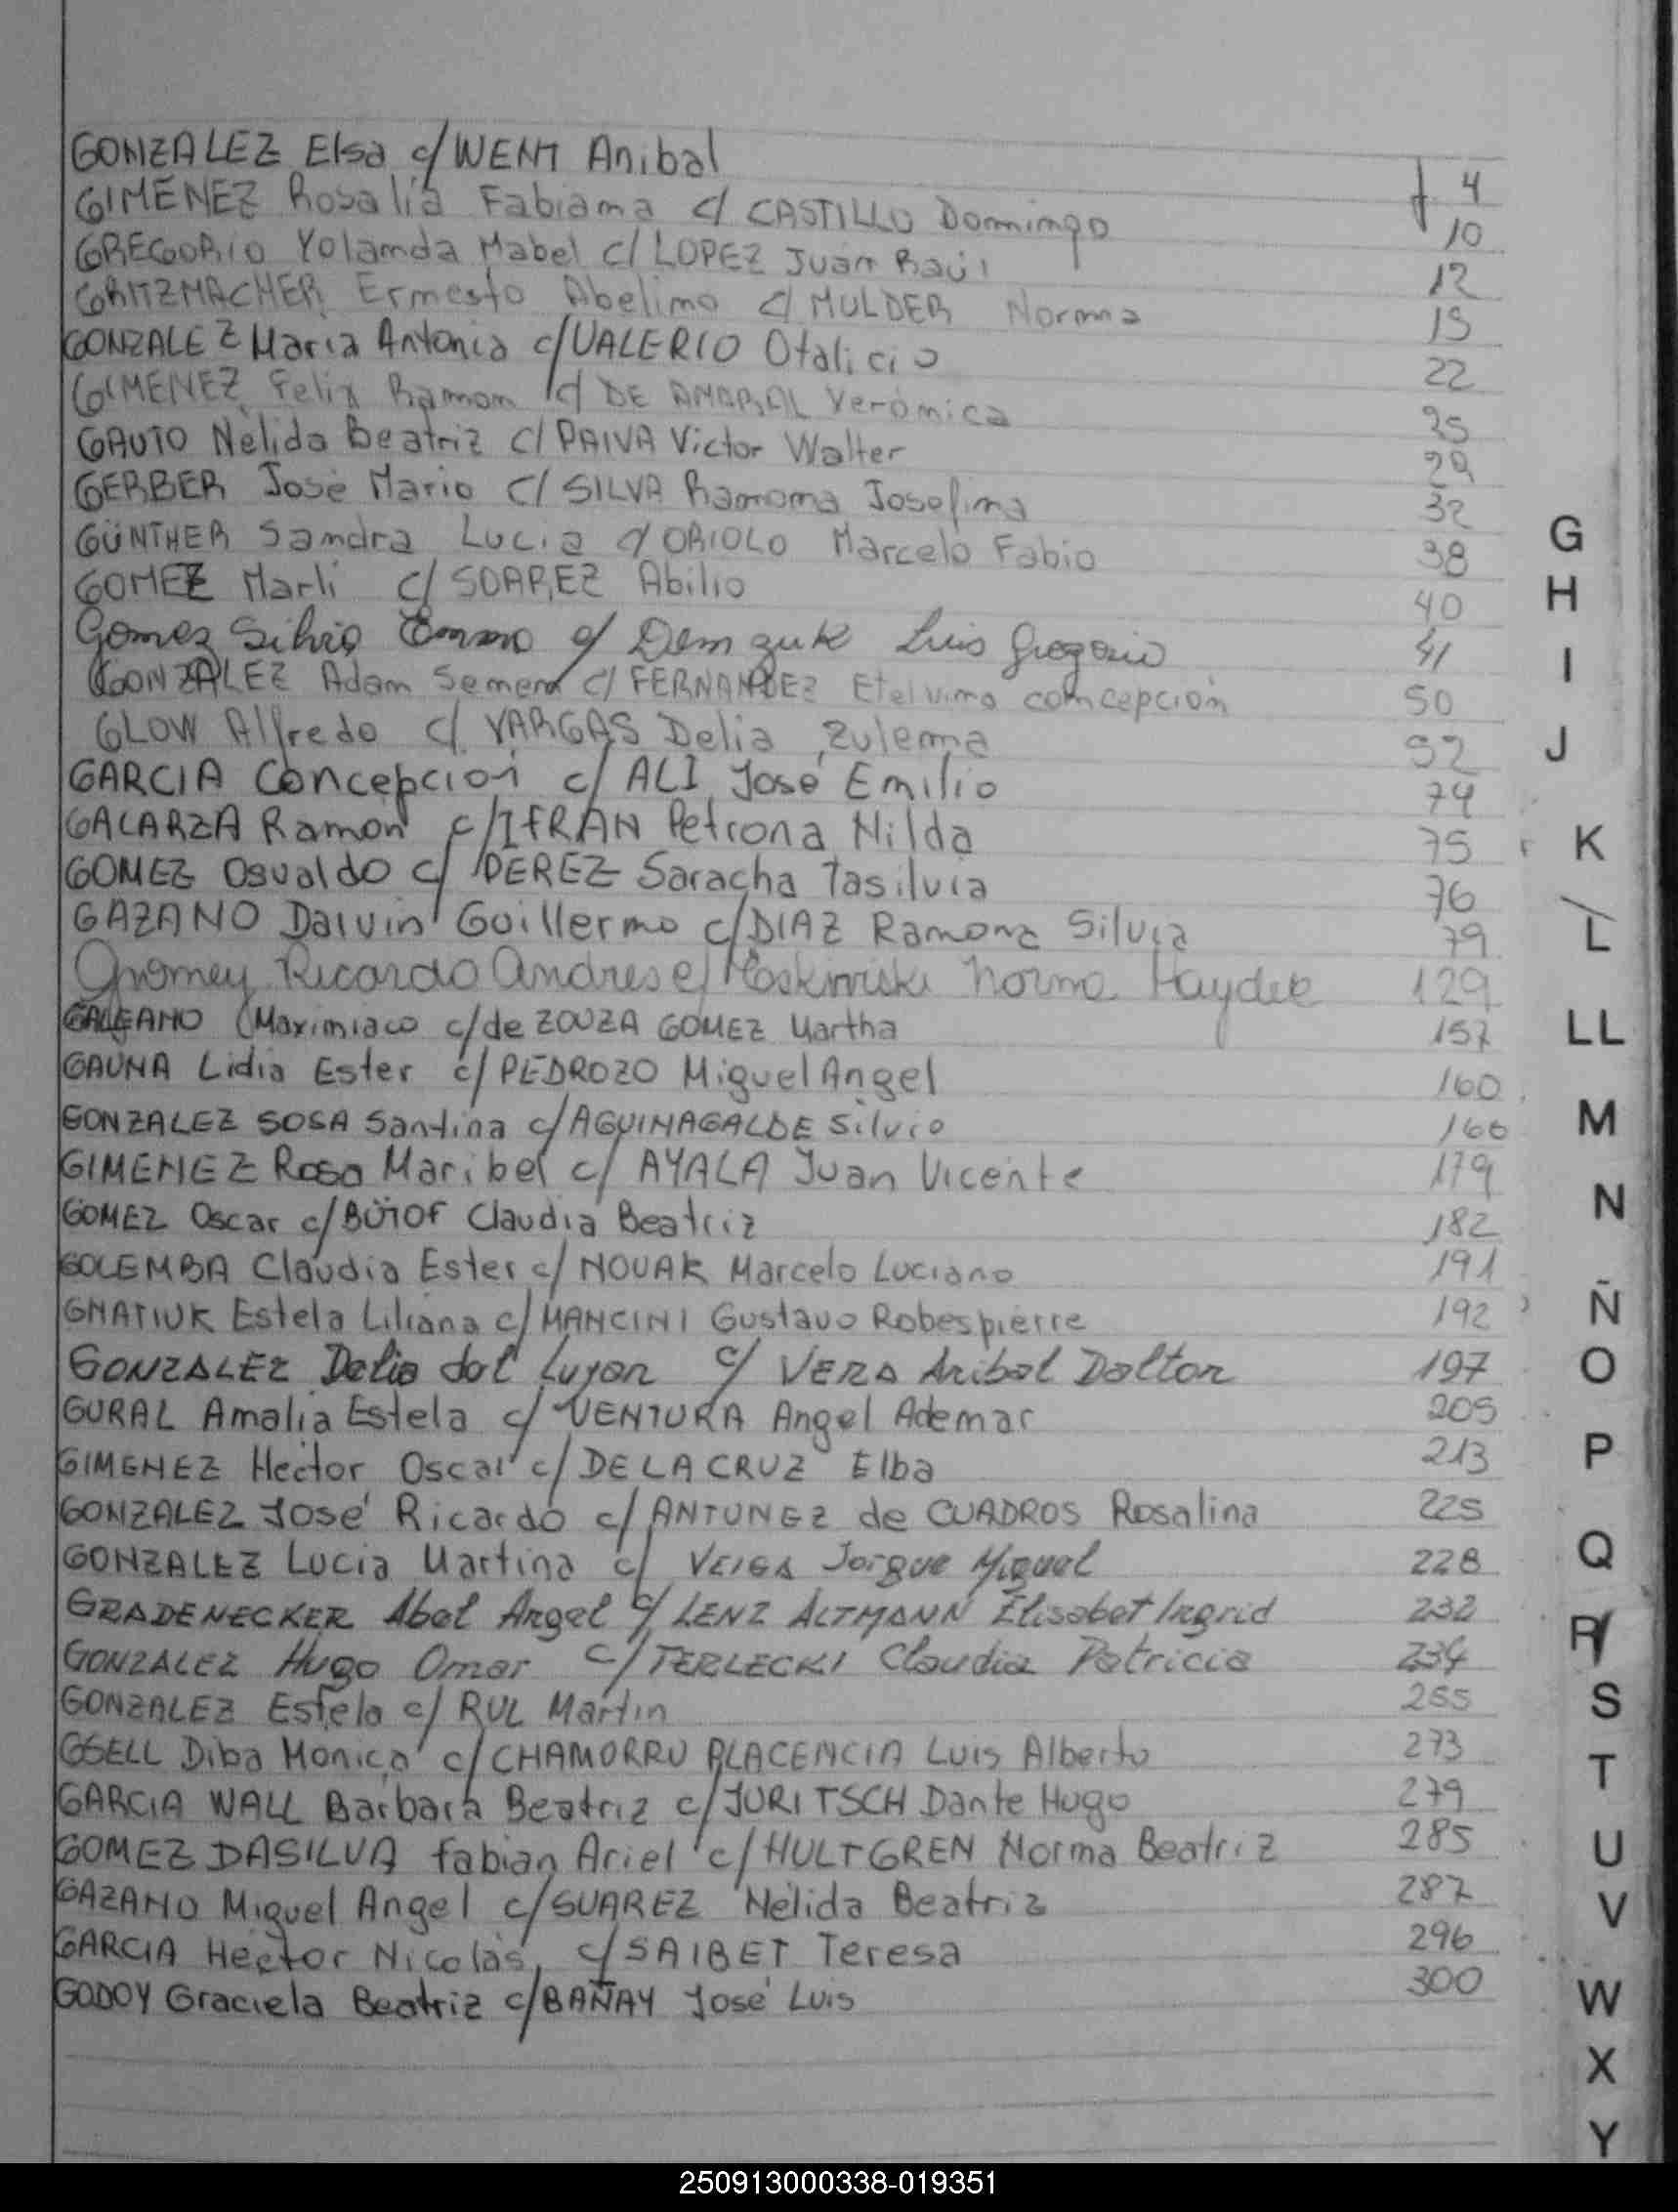 GONZALEZ Elsa c/ WENT Anibal f 4
GIMÉNEZ Rosalía Fabiana c/ CASTILLO Domingo 10
GREGORIO Yolanda Mabel c/ LOPEZ Juan Raúl 12
GRITZMACHER Ernesto Abelino c/ MULDER Norma 15
GONZALEZ Maria Antonia c/ VALERIO Otalicio 22
GIMENEZ Felix Ramon c/ DE AMARAL Verónica 25
GAUTO Nélida Beatriz c/ PAIVA Victor Walter 29
GERBER José Mario c/ SILVA Ramona Josefina 32
GÜNTHER Sandra Lucia c/ ORIOLO Marcelo Fabio 38
GOMEZ Marli c/ SOAREZ Abilio 40
Gomez Silvio c/ Demzuk Luis Gregorio 41
GONZALEZ Adam c/ FERNANDEZ Etelvina concepción 50
GLOW Alfredo c/ VARGAS Delia Zulema 52
GARCIA Concepción c/ ALI José Emilio 74
GALARZA Ramon c/ IFRAN Petrona Nilda 75
GOMEZ Osvaldo c/ PEREZ Saracha Tasilvia 76
GAZANO Darvin Guillermo c/ DIAZ Ramona Silvia 79
Ricardo Andres c/ Norma Haydee 129
GALEANO Maximiaco c/ de ZOUZA GOMEZ Martha 157
GAUNA Lidia Ester c/ PEDROZO Miguel Angel 160
GONZALEZ SOSA Santina c/ AGUINAGALDE Silvio 166
GIMENEZ Rosa Maribel c/ AYALA Juan Vicente 179
GOMEZ Oscar c/ BÜTOF Claudia Beatriz 182
GOLEMBA Claudia Ester c/ NOVAK Marcelo Luciano 191
GNATIUK Estela Liliana c/ MANCINI Gustavo Robespierre 192
GONZALEZ Delia del Lujan c/ VERA Anibal Dalton 197
GURAL Amalia Estela c/ VENTURA Angel Ademar 205
GIMENEZ Hector Oscar c/ DE LA CRUZ Elba 213
GONZALEZ José Ricardo c/ ANTUNEZ de CUADROS Rosalina 225
GONZALEZ Lucia Martina c/ VEIGA Jorgue Miguel 228
GRADENECKER Abel Angel c/ LENZ ALTMANN Elisabet Ingrid 232
GONZALEZ Hugo Omar c/ TERLECKI Claudia Patricia 234
GONZALEZ Estela c/ RUL Martin 255
GSELL Diba Monica c/ CHAMORRO PLACENCIA Luis Alberto 273
GARCIA WALL Barbara Beatriz c/ JURITSCH Dante Hugo 279
GOMEZ DASILVA Fabian Ariel c/ HULTGREN Norma Beatriz 285
GAZANO Miguel Angel c/ SUAREZ Nélida Beatriz 287
GARCIA Hector Nicolás c/ SAIBET Teresa 296
GODOY Graciela Beatriz c/ BAÑAY José Luis 300
G
H
I
J
K
L
LL
M
N
Ñ
O
P
Q
R
S
T
U
V
W
X
Y
250913000338-019351